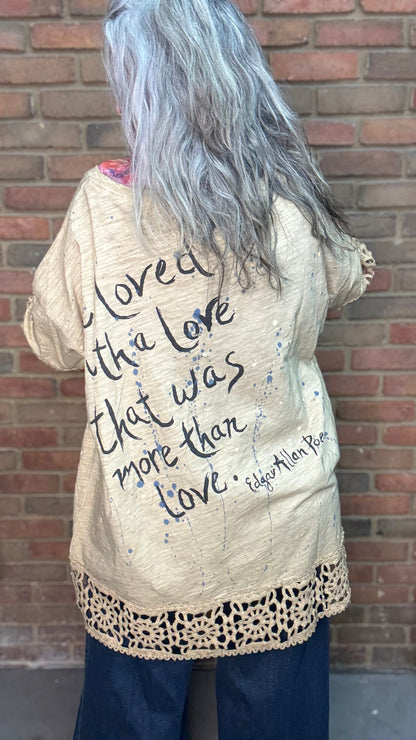 loved
with a Love
that was
more than
Love.
Edgar Allan Poe